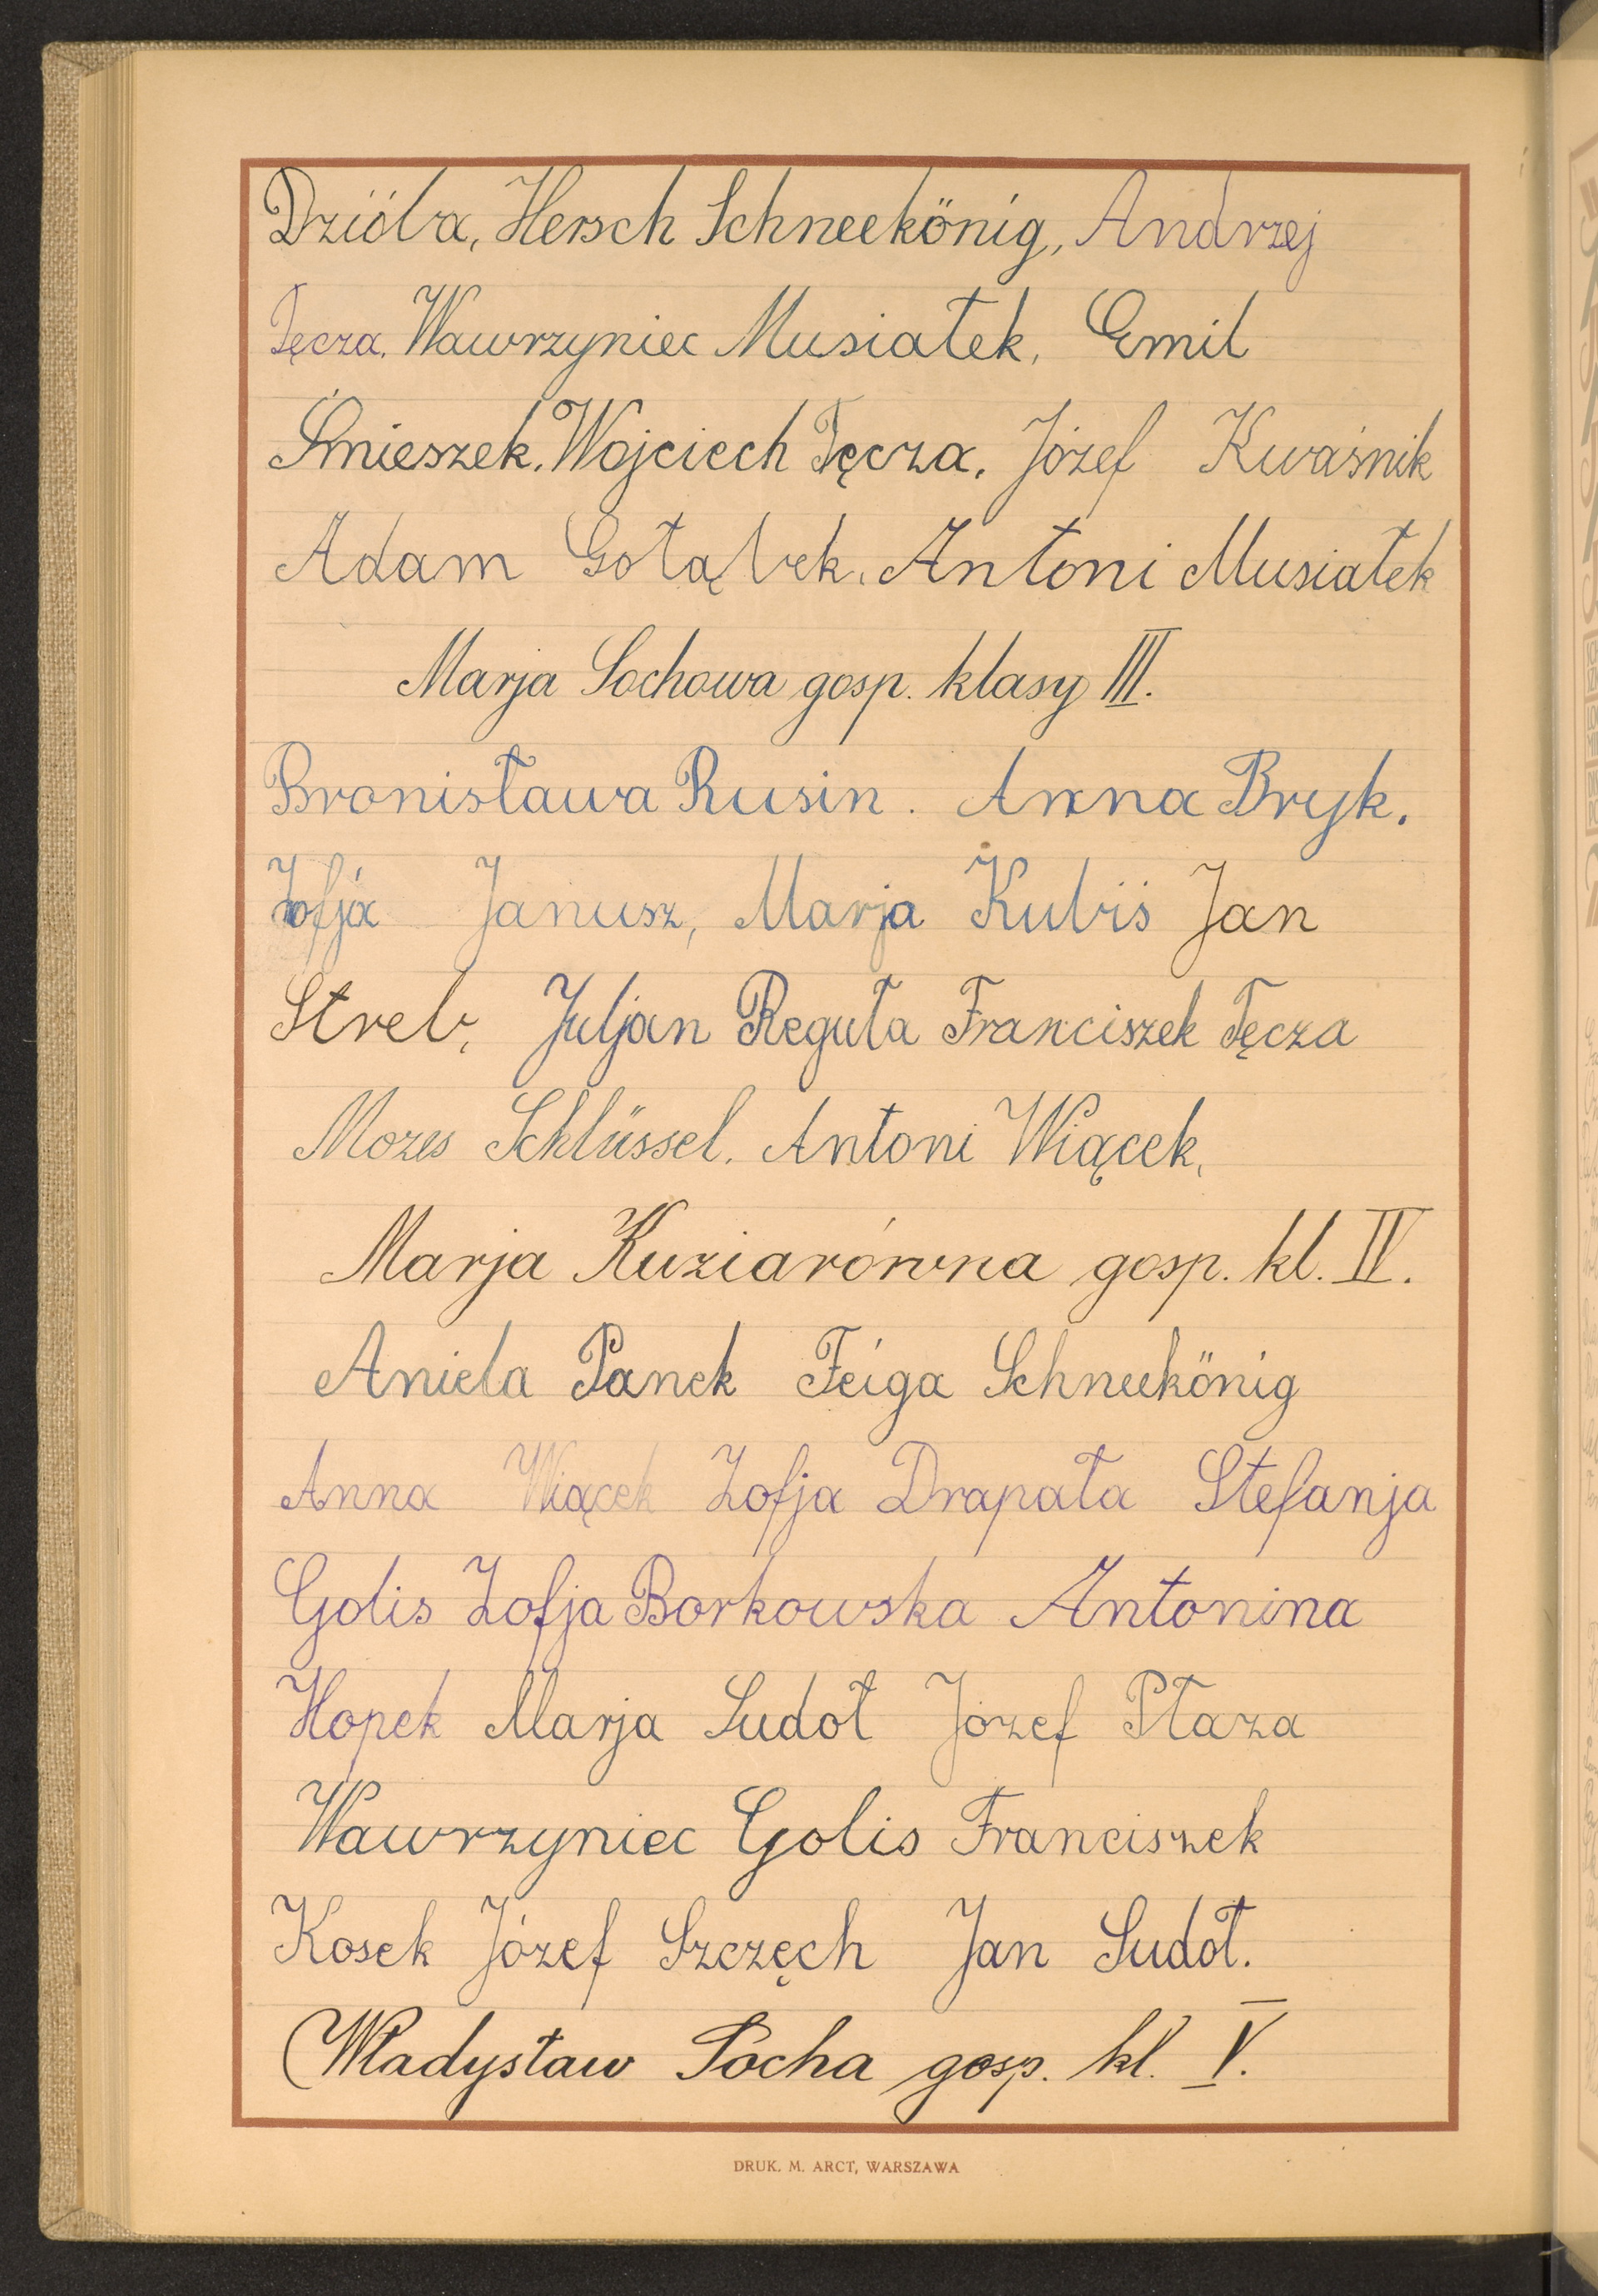 Dzióba, Hersch Schneekönig, Andrzej
Tęcza. Wawrzyniec Musiałek, Emil
Śmieszek. Wojciech Tęcza. Józef Kwaśnik
Adam Gołąbek. Antoni Musiałek
Marja Sochowa gosp. klasy III.
Bronisława Rusin. Anna Bryk.
Zofja Janusz, Marja Kubiś Jan
Streb, Juljan Reguła Franciszek Tęcza
Mozes Schlüssel. Antoni Wiącek,
Marja Kuziarówna gosp. kl. IV.
Aniela Panek Feiga Schneekönig
Anna Wiącek Zofja Drapała Stefanja
Golis Zofja Borkowska Antonina
Hopek Marja Sudoł Józef Płaza
Wawrzyniec Golis Franciszek
Kosek Józef Szczęch Jan Sudoł.
Władysław Socha gosp. kl. V.
DRUK. M. ARCT, WARSZAWA